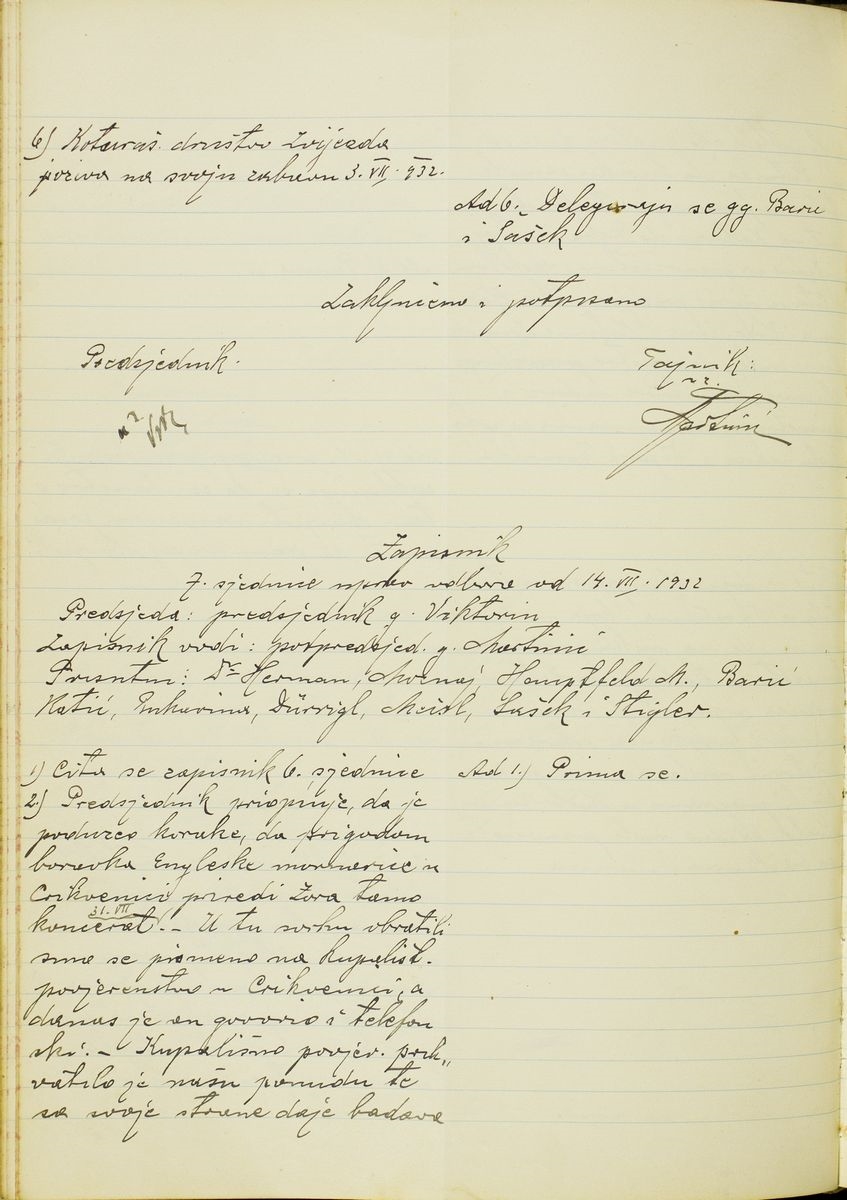 6) Koturaš. društvo Zvijezda
poziva na svoju zabavu 3. VII. 932.
Ad 6. Delegiraju se gg. Barić
i Sašek
Zaključeno i potpisano
Predsjednik.
Tajnik:
Zapisnik
7. sjednice uprav odbora od 14. VII. 1932
Predsjeda: predsjednik g. Viktorin
Zapisnik vodi: potpredsjed. g. Martinić
Prisutni: Dr Herman, Hemptfeld M., Barić
Katić, Dürrigl, Meisl, Sašek i Stigler.
1) Čita se zapisnik 6. sjednice
Ad 1.) Prima se.
2.) Predsjednik priopćuje, da je
poduzeo korake, da prigodom
boravka Engleske mornarice u
Crikvenici priredi Zora tamo
31. VII
koncerat. - U tu svrhu obratili
smo se pismeno na kupališt.
povjerenstvo u Crikvenici, a
danas je on govorio i telefon
ski. - Kupališno povjer. prih„
vatilo je našu ponudu te
sa svoje strane daje badava